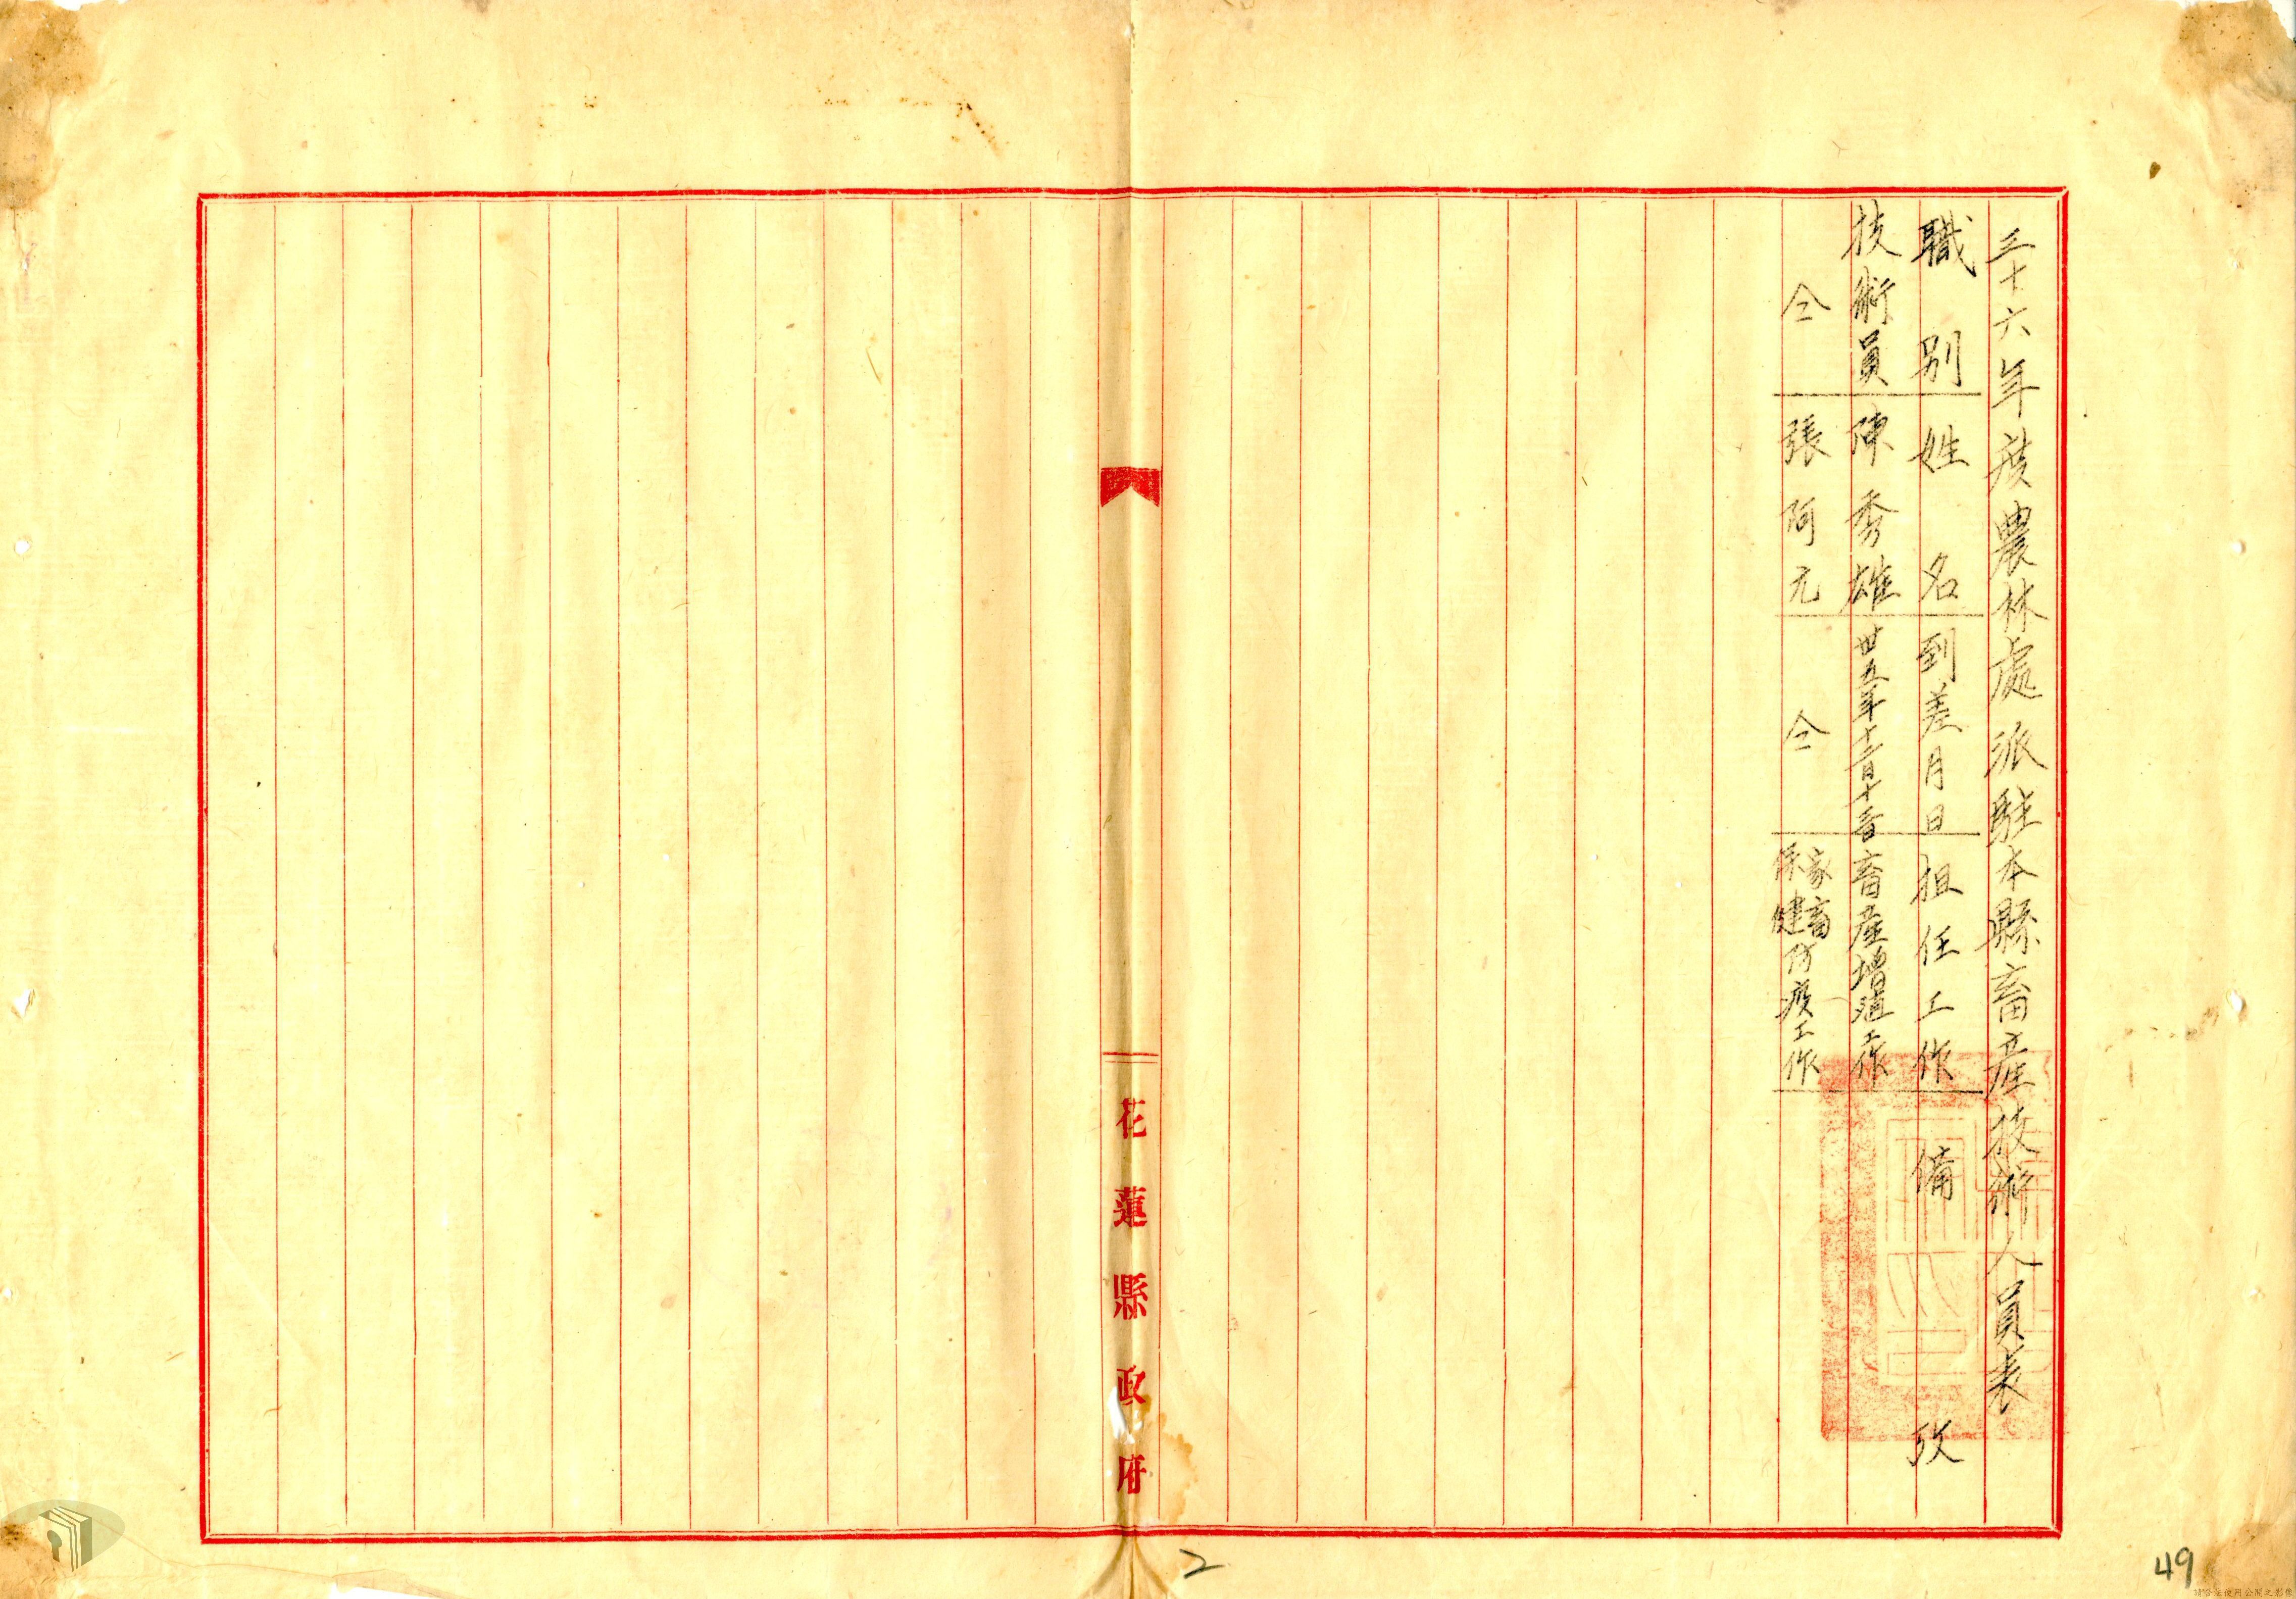 三十六年度農林處派駐本縣畜產技術人員表
職別 姓名 到差月日 担任工作 備攷
技術員 陳秀雄 卅五年十二月十三日 畜產增殖工作
仝 張阿元 仝 家畜保健防疫工作
花蓮縣政府
2
49